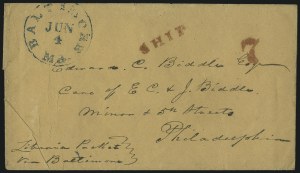 BALTIMORE
JUN
4
Md.
SHIP
7
Edward C. Biddle Esq
Care of E C & J Biddle
Minor & 5th Streets
Philadelphia
Liberia Packet
Via Baltimore